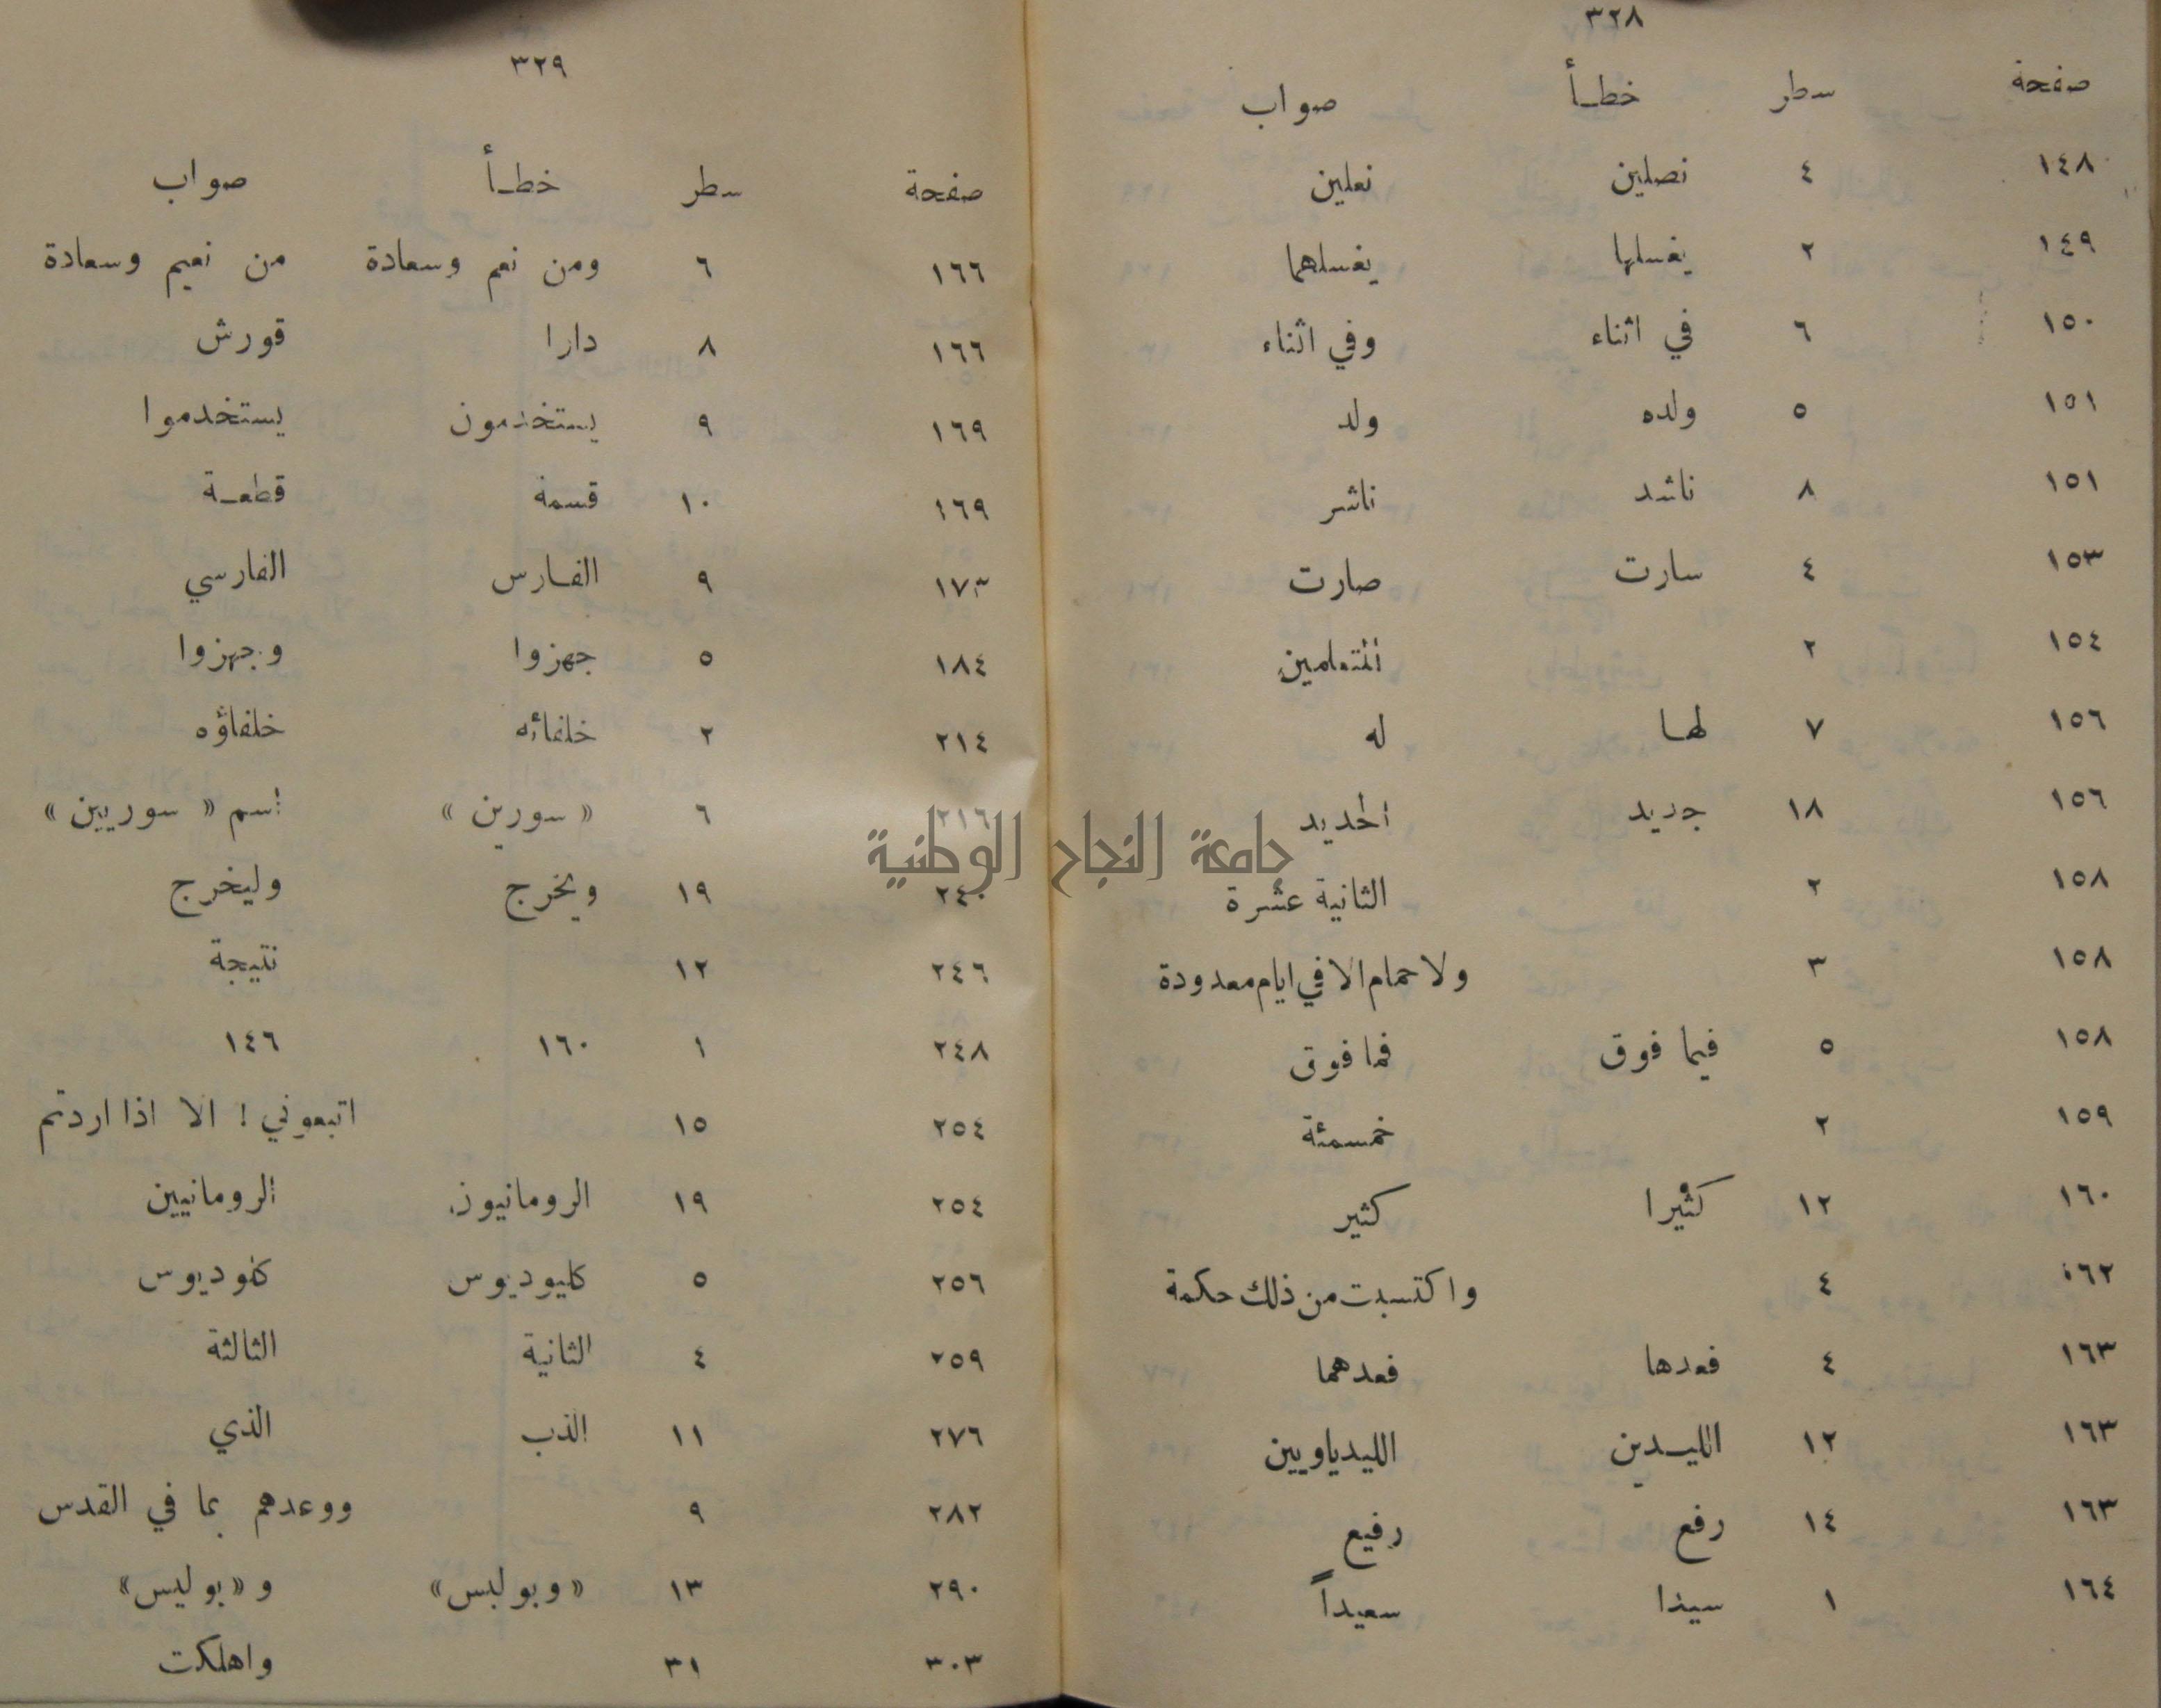 ٣٢٨
صفحة سطر خطـأ صواب
١٤٨ ٤ نصلين نعلين
١٤٩ ٢ يغسلها يغسلهما
١٥٠ ٦ في اثناء وفي اثناء
١٥١ ٥ ولده ولد
١٥١ ٨ ناشد ناشر
١٥٣ ٤ سارت صارت
١٥٤ ٢ المتعلمين
١٥٦ ٧ لهـا له
١٥٦ ١٨ جديد الجديد
١٥٨ ٢ الثانية عشرة
١٥٨ ٣ ولا حمام الا في ايام معدودة
١٥٨ ٥ فيما فوق فما فوق
١٥٩ ٢ خمسمئة
١٦٠ ١٢ كثيرا كثير
١٦٢ ٤ واكتسبت من ذلك حكمة
١٦٣ ٤ فعدها فعدهما
١٦٣ ١٢ الليـدين الليدياويين
١٦٣ ١٤ رفع رفيع
١٦٤ ١ سيدا سعيداً
٣٢٩
صفحة سطر خطـأ صواب
١٦٦ ٦ ومن نعم وسعادة من نعيم وسعادة
١٦٦ ٨ دارا قورش
١٦٩ ٩ يستخدمون يستخدموا
١٦٩ ١٠ قسمة قطعـة
١٧٣ ٩ الفـارس الفارسي
١٨٤ ٥ جهزوا وجهزوا
٢١٤ ٢ خلفائه خلفاؤه
٢١٦ ٦ « سورين » اسم « سوريين »
٢٤٠ ١٩ ويخرج وليخرج
٢٤٦ ١٢ نتيجة
٢٤٨ ١ ١٦٠ ١٤٦
٢٥٤ ١٥ اتبعوني ! الا اذا اردتم
٢٥٤ ١٩ الرومانيون الرومانيين
٢٥٦ ٥ كليوديوس كلوديوس
٢٥٩ ٤ الثانية الثالثة
٢٧٦ ١١ الذب الذي
٢٨٢ ٩ ووعدهم بما في القدس
٢٩٠ ١٣ «وبوليس» و «بوليس»
٣٠٣ ٣١ واهلكت
جامعة النجاح الوطنية